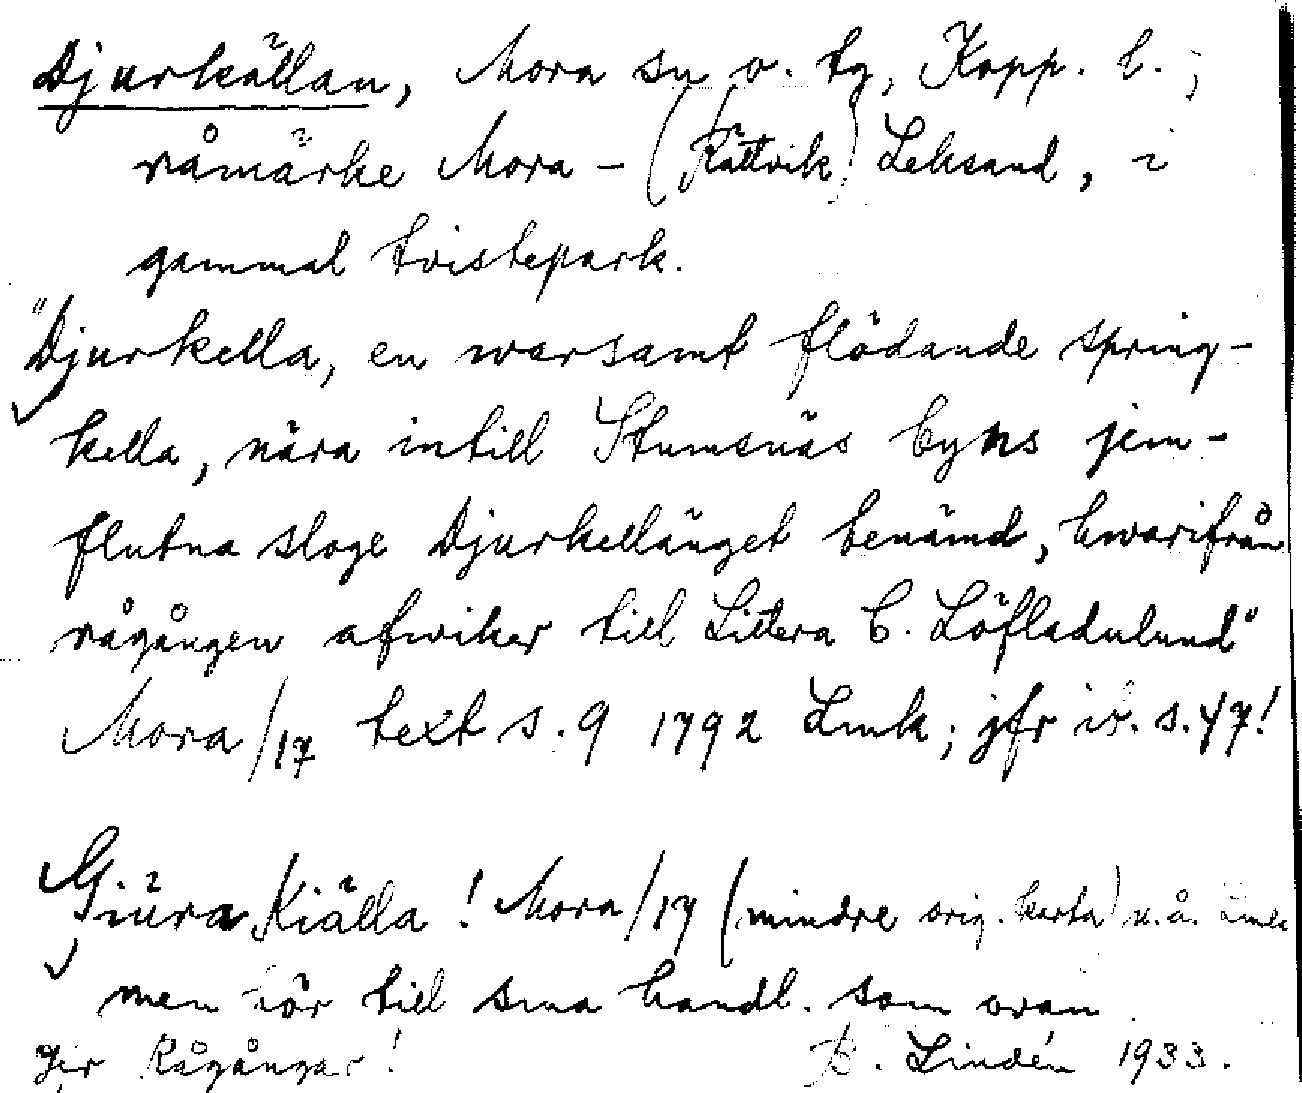 Djurkällan, Mora sn o. tg, Kopp. l.;
råmärke Mora – (Rättvik) Leksand, i
gammal tvistepark.
"Djurkella, en warsamt flödande spring-
kella, nära intill Stumsnäs byns jem-
flutna sloge Djurkellänget benämd, hwarifrån
rågången afwiker till Littera C. Löfladulund"
Mora/17 text s. 9 1792 Lmk; jfr ib. s. 47!
Giüra Kiälla! Mora/17 (mindre orig. karta) u.å. Lmk
men hör till sma handl. som ovan.
Jfr Rågångar! B. Lindén 1933.